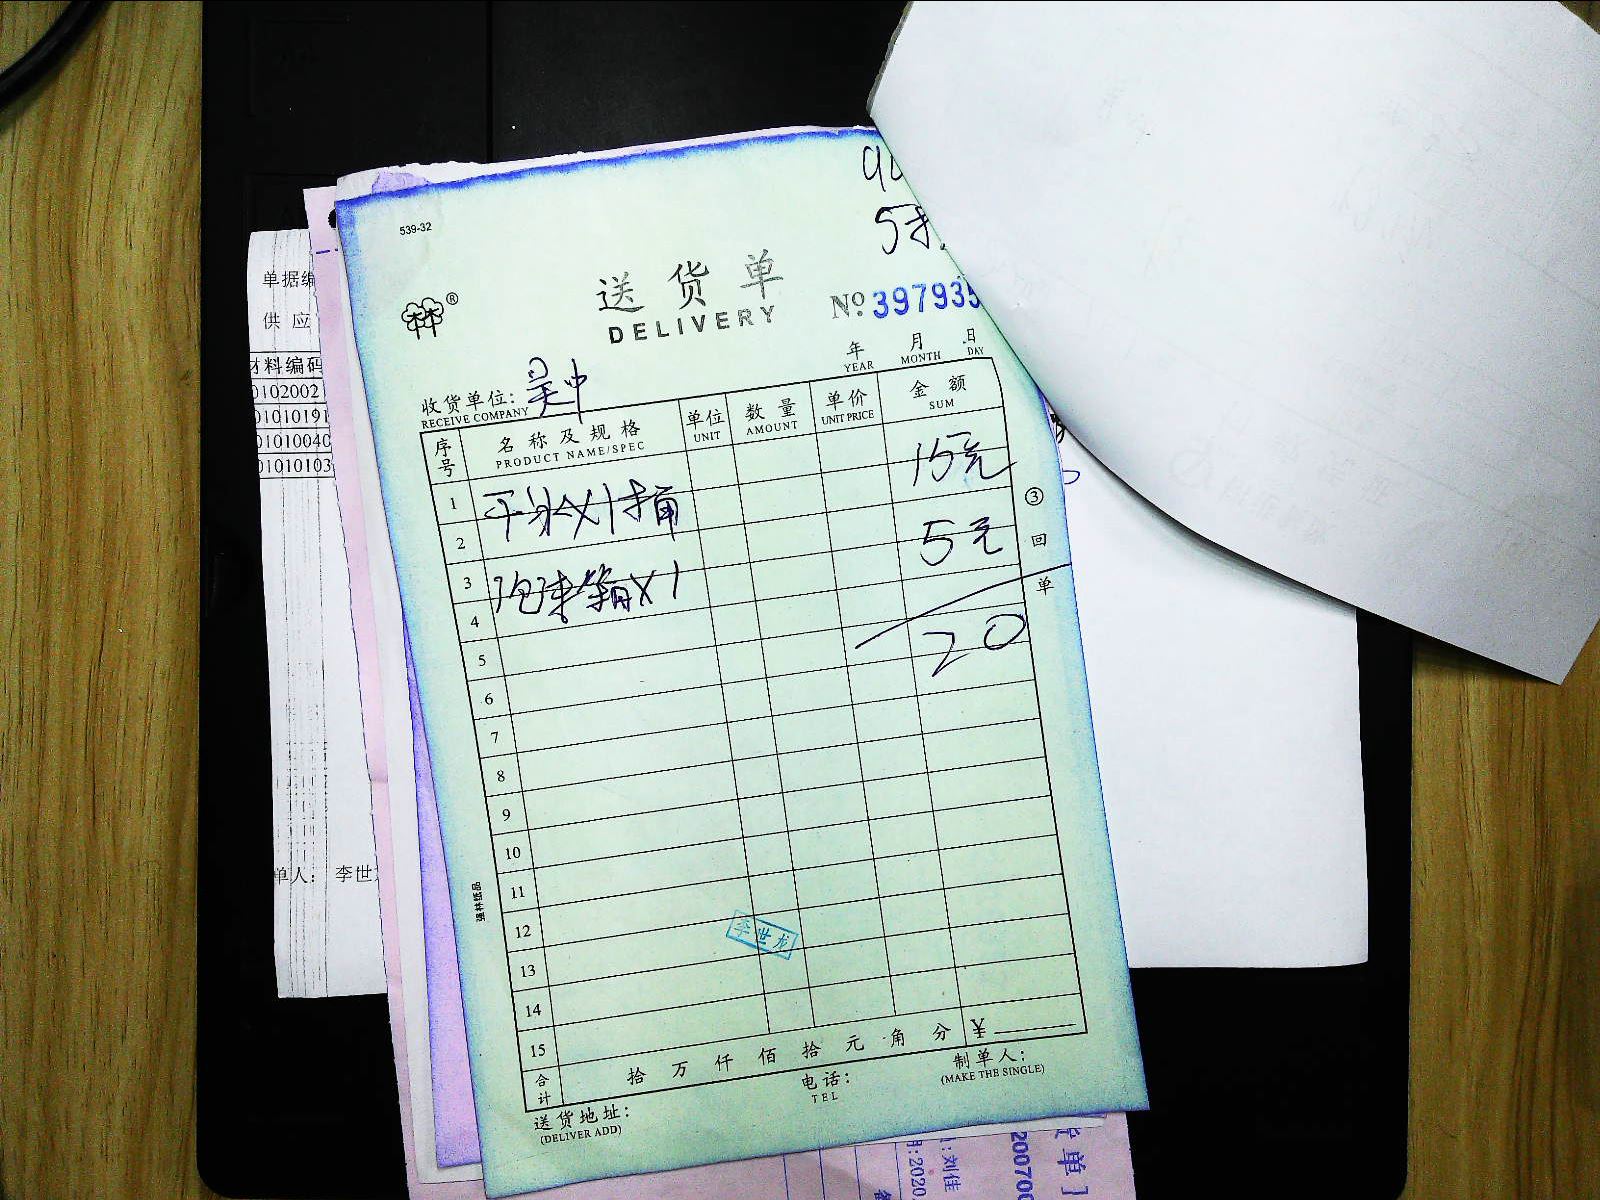 539-32
送货单
DELIVERY
№ 397935
年 月 日
YEAR MONTH DAY
收货单位: 吴中
RECEIVE COMPANY
序号 名称及规格 单位 数量 单价 金额
PRODUCT NAME/SPEC UNIT AMOUNT UNIT PRICE SUM
1 15元
2
3 5元
4 泡沫箱X1
20
5
6
7
8
9
10
11
12
13
14
15
李世龙
③回单
合计 拾 万 仟 佰 拾 元 角 分 ¥
送货地址: 电话: 制单人:
(DELIVER ADD) TEL (MAKE THE SINGLE)
强林纸品
单据编
供 应
材料编码
0102002
01010191
01010040
01010103
单人: 李世
刘佳
2020
200700
单]